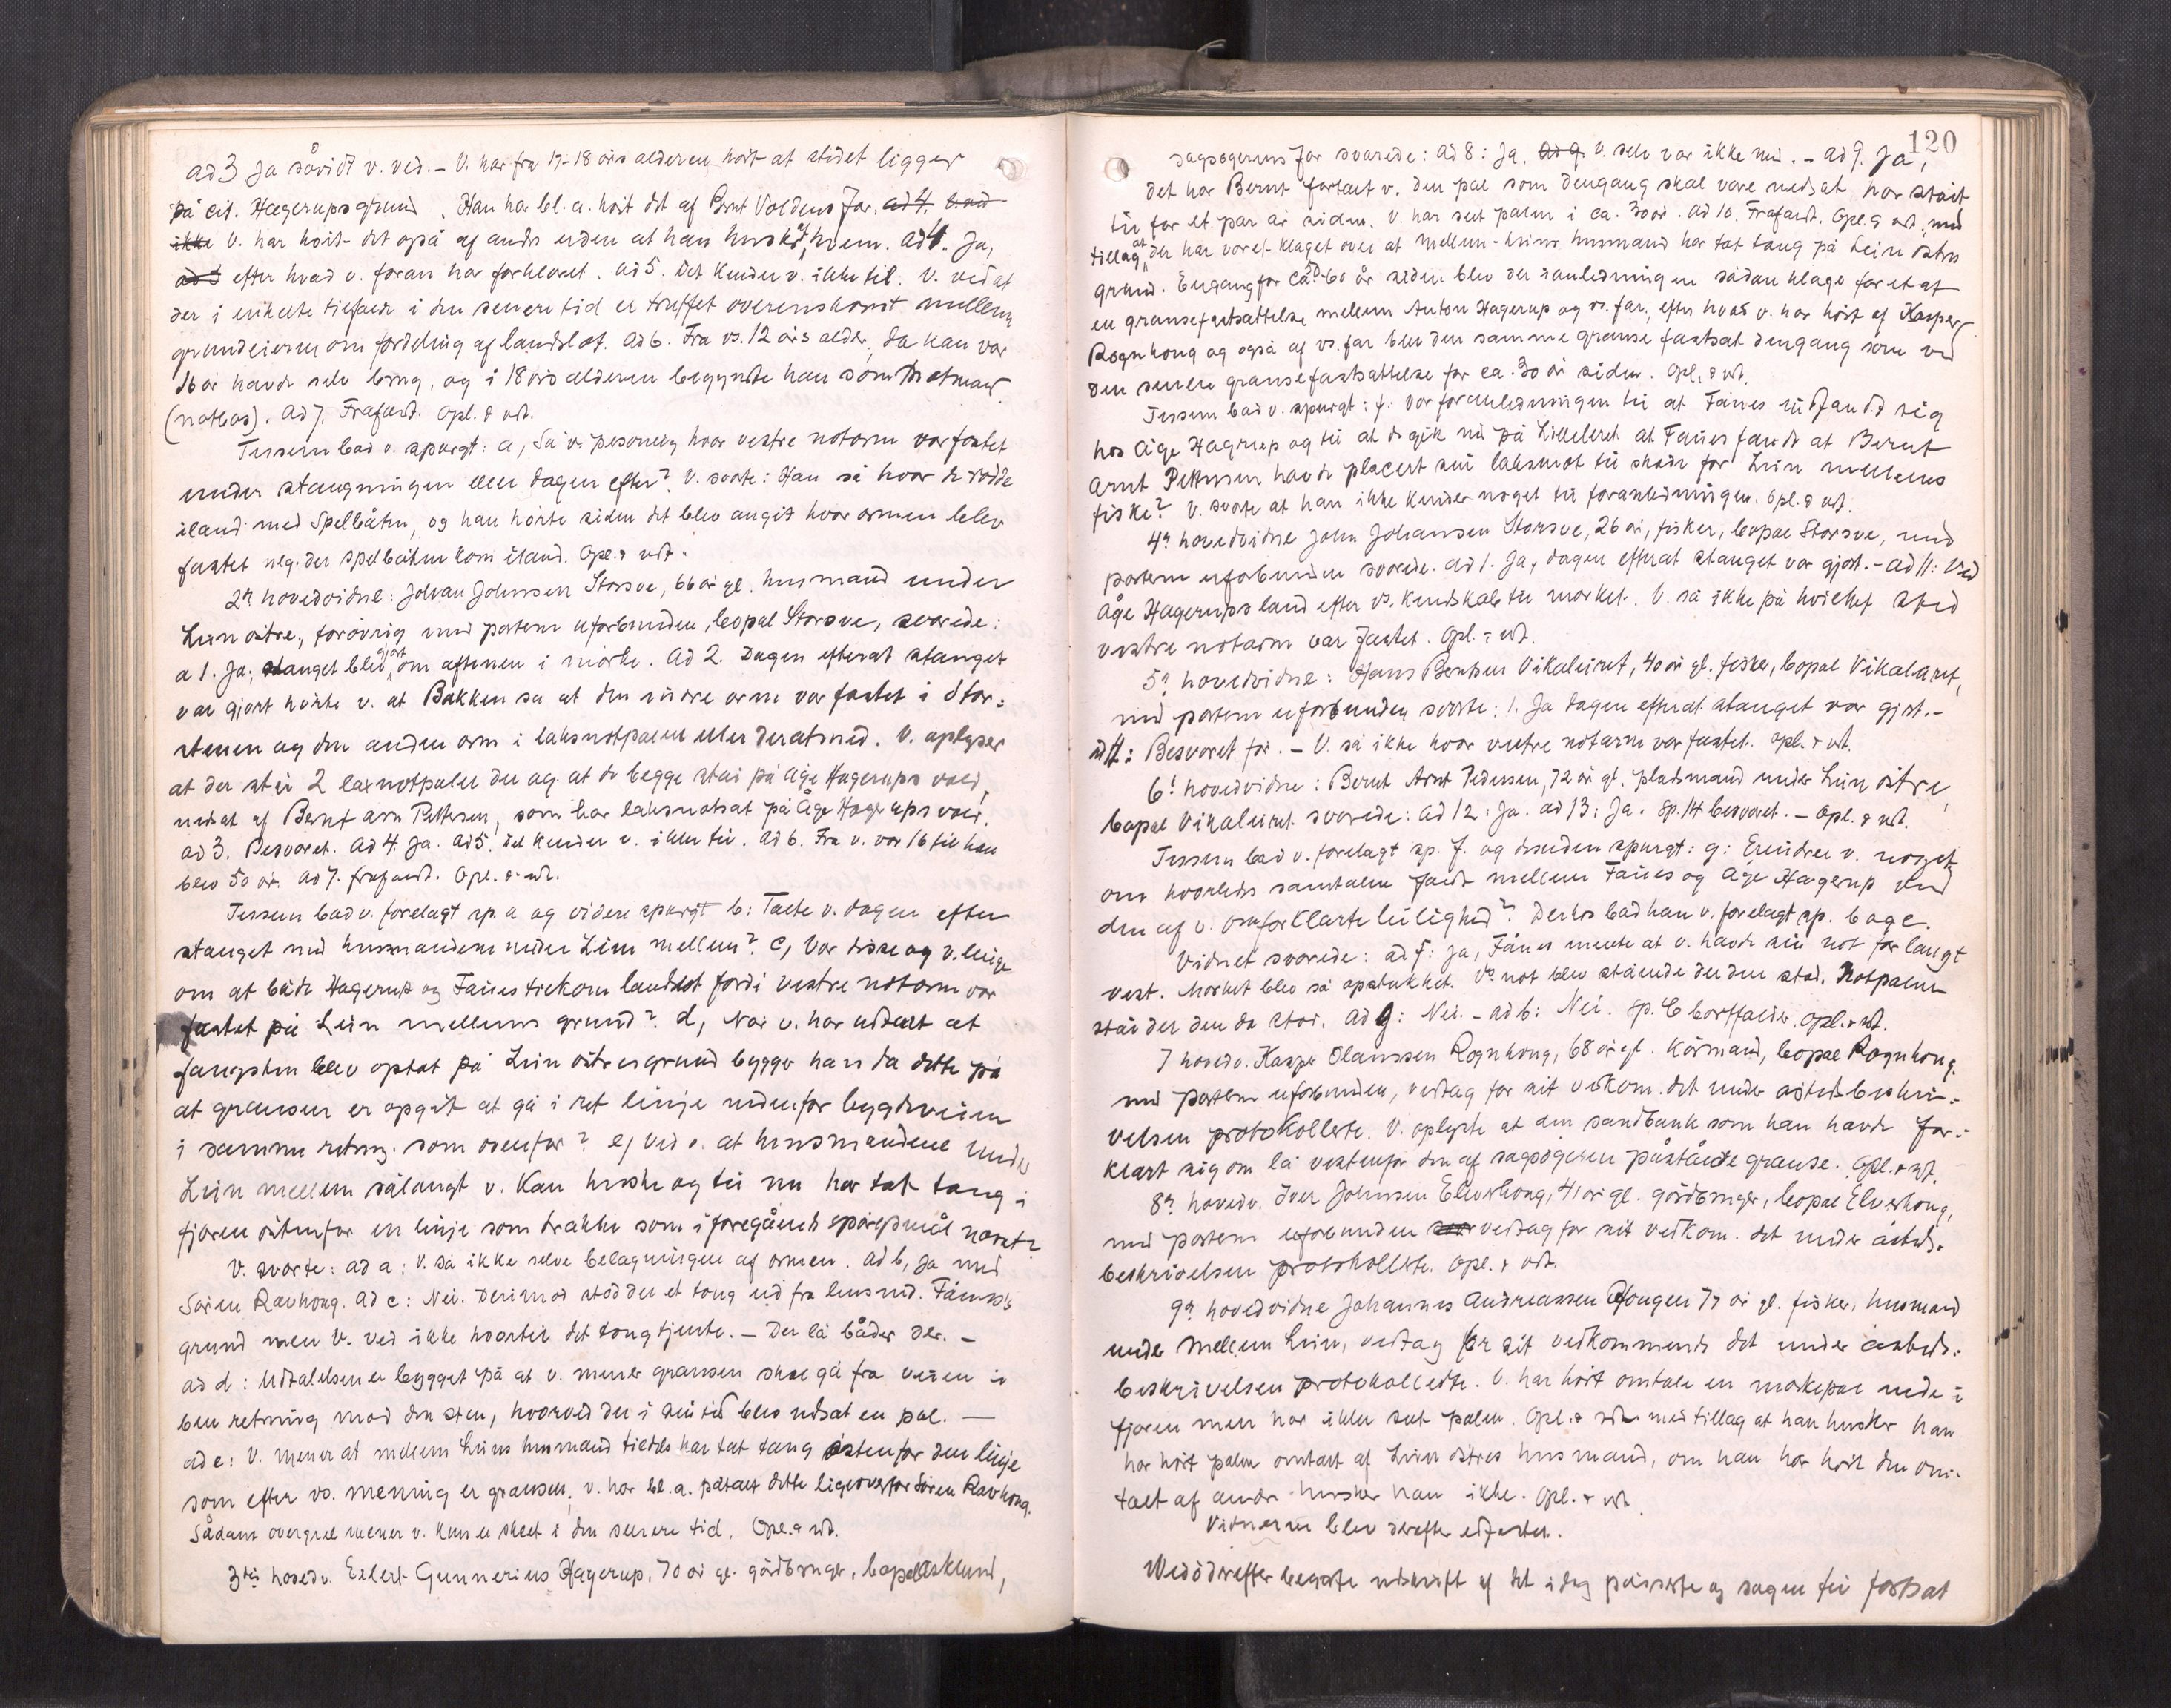 ad 3 Ja såvidt v. ved. - V. har fra 17-18 års alderen hørt at stedet ligger
på cit. Hagerups grund. Han har bl. a. hørt det af Bernt Voldens far. ad 4.
ikke V. har hørt det også af andre uden at han husker af hvem. Ad 4. Ja,
efter hvad v. foran har forklaret. Ad 5. Det kender v. ikke til. V. ved at
der i enkelte tilfælde i den senere tid er truffet overenskomst mellem
grundeierne om fordeling af landslot. Ad 6. Fra vs. 12 års alder, da han var
16 år havde selv brug, og i 18 års alderen begyndte han som notmand
(notbas). Ad 7. Frafaldt. Opl. & vedt.
Tessem bad v. spurgt: a, Så v. personlig hvor vestre notarm var fæstet
under stængningen eller dagen efter? V. svarte: Han så hvor de rodde
iland med Spelbåten, og han hørte siden det blev angit hvor armen blev
fæstet nlg. der spelbåten kom iland. Opl. & vedt.
2't hovedvidne: Johan Johnsen Storsve, 66 år gl. husmand under
Lein østre, forøvrig med parterne uforbunden, bopæl Storsve, svarede:
a 1. Ja, stænget blev gjort om aftenen i mørke. Ad 2. Dagen efterat stænget
var gjort hørte v. at Bakken sa at den indre arm var fæstet i Stor-
stenen og den anden arm i laksnotpælen eller deratmed. V. oplyser
at der står 2 laxnotpæler der og at de begge står på Åge Hagerups vold,
nedsat af Bernt Arn Pettersen, som har laksnotsat på Åge Hagerups vold.
Ad 3. Besvaret. Ad 4. Ja. Ad 5. Det kender v. ikke til. Ad 6. Fra v. var 16 til han
blev 50 år. Ad 7. frafaldt. Opl. & vedt.
Tessem bad v. forelagt sp. a og videre spurgt b: Talte v. dagen efter
stænget med husmændene under Lein mellem? c, Var disse og v. enige
om at både Hagerup og Fånes tilkom landslot fordi vestre notarm var
fæstet på Lein mellems grund? d, Når v. har udtalt at
fangsten blev optat på Lein østres grund bygger han da dette på
at grænsen er opgåt at gå i ret linje nedenfor bygdeveien
i samme retning som ovenfor? e, Ved v. at husmændene under
Lein mellem sålangt v. kan huske og til nu har tat tang i
fjæren østenfor en linje som trækkes som i foregående spørsmål nævnt?
V. svarte: ad a: V. så ikke selve belægningen af armen. Ad b, Ja med
Søren Ravhaug. Ad c: Nei. Derimod stod der et tong ud fra husmd. Fånes's
grund men V. ved ikke hvortil det tong tjente. - Der lå båder der. -
ad d: Udtalelsen er bygget på at v. mener grænsen skal gå fra veien i
ben retning mod den sten, hvorved der i sin tid blev nedsat en pæl. -
ad e: V. mener at mellem Leins husmænd tildels har tat tang østenfor den linje
som efter vs. mening er grænsen; v. har bl. a. påtalt dette ligeoverfor Søren Ravhaug.
Sådant overgreb mener v. kun er skeet i den senere tid. Opl. & vedt.
3die hovedv. Eilert Gunnerius Hagerup, 70 år gl. gårdbruger, bopæl Asklund,
120
sagsøgerens far svarede: ad 8: Ja. Ad 9. V. selv var ikke med. - Ad 9. Ja,
det har Bernt fortalt v. Den pæl som dengang skal være nedsat har stått
til for et par år siden. V. har set pælen i ca. 30 år. Ad 10. Frafaldt. Opl. & vedt. med
tillæg at der har været klaget over at mellem-Leins husmænd har tat tang på Lein østres
grund. Engang for ca. 50-60 år siden blev der i anledningen sådan klage foretat
en grænsefastsættelse mellem Anton Hagerup og vs. far, efter hvad v. har hørt af Kasper
Rognhoug og også af vs. far blev den samme grænse fastsat dengang som ved
den senere grænsefastsættelse for ca. 30 år siden. Opl. & vedt.
Tessem bad v. spurgt: f: Var foranledningen til at Fånes indfandt sig
hos Åge Hagerup og til at de gik ned på Lilleleret at Fånes fandt at Bernt
Arnt Pettersen havde placert sin laksenot til skade for Lein mellems
fiske? V. svarte at han ikke kender noget til foranledningen. Opl. & vedt.
4't hovedvidne John Johansen Storsve, 26 år, fisker, bopæl Storsve, med
parterne uforbunden svarede. Ad 1. Ja, dagen efterat stænget var gjort. - Ad 11: Ved
Åge Hagerups land efter vs. kendskab til mærket. V. så ikke på hvilket sted
vestre notarm var fæstet. Opl. & vedt.
5't hovedvidne: Hans Berntsen Vikaleiret, 40 år gl. fisker, bopæl Vikaleiret,
med parterne uforbunden svarte: 1. Ja dagen efterat stænget var gjort. -
ad 11: Besvaret før. - V. så ikke hvor vestre notarm var fæstet. Opl. & vedt.
6't hovedvidne: Bernt Arnt Pedersen, 72 år gl. pladsmand under Lein østre,
bopæl Vikaleiret svarede: ad 12: Ja. ad 13: Ja. Sp. 14 besvaret. - Opl. & vedt.
Tessem bad v. forelagt sp. f. og desuden spurgt: g: Erindrer v. noget
om hvorledes samtalen faldt mellem Fånes og Åge Hagerup ved
den af v. omforklarte leilighed? Derhos bad han v. forelagt sp. b og c.
Vidnet svarede: ad f: Ja, Fånes mente at v. havde sin not for langt
vest. Mærket blev så opstukket. Vs. not blev stående der den stod. Notpælen
står der den da stod. Ad g: Nei. - ad b: Nei. Sp. c bortfalder. Opl. & vedt.
7 hovedv. Kasper Olaussen Rognhoug, 68 år gl. kårmand, bopæl Rognhoug,
med parterne uforbunden, vedtag for sit vedkom. det under åstedsbeskri-
velsen protokollerte. V. oplyste at den sandbank som han havde for-
klart sig om lå vestenfor den af sagsøgeren påståede grænse. Opl. & vedt.
8't hovedv. Iver Johnsen Elvrhoug, 41 år gl. gårdbruger, bopæl Elvrhoug,
med parterne uforbunden vedtag for sit vedkom. det under åsteds-
beskrivelsen protokollerte. Opl. & vedt.
9't hovedvidne Johannes Andreassen Hougen 77 år gl. fisker, husmand
under Mellem Lein, vedtag for sit vedkommende det under åsteds-
beskrivelsen protokollerte. V. har hørt omtale en mærkepæl nede i
fjæren men har ikke set pælen. Opl. & vedt. med tillæg at han husker han
har hørt pælen omtalt af Lein østres husmænd, om han har hørt den om-
talt af andre husker han ikke. Opl. & vedt.
Vidnerne blev derefter edfæstet.
Wedø derefter begærte udskrift af det idag passerte og sagen til fortsat